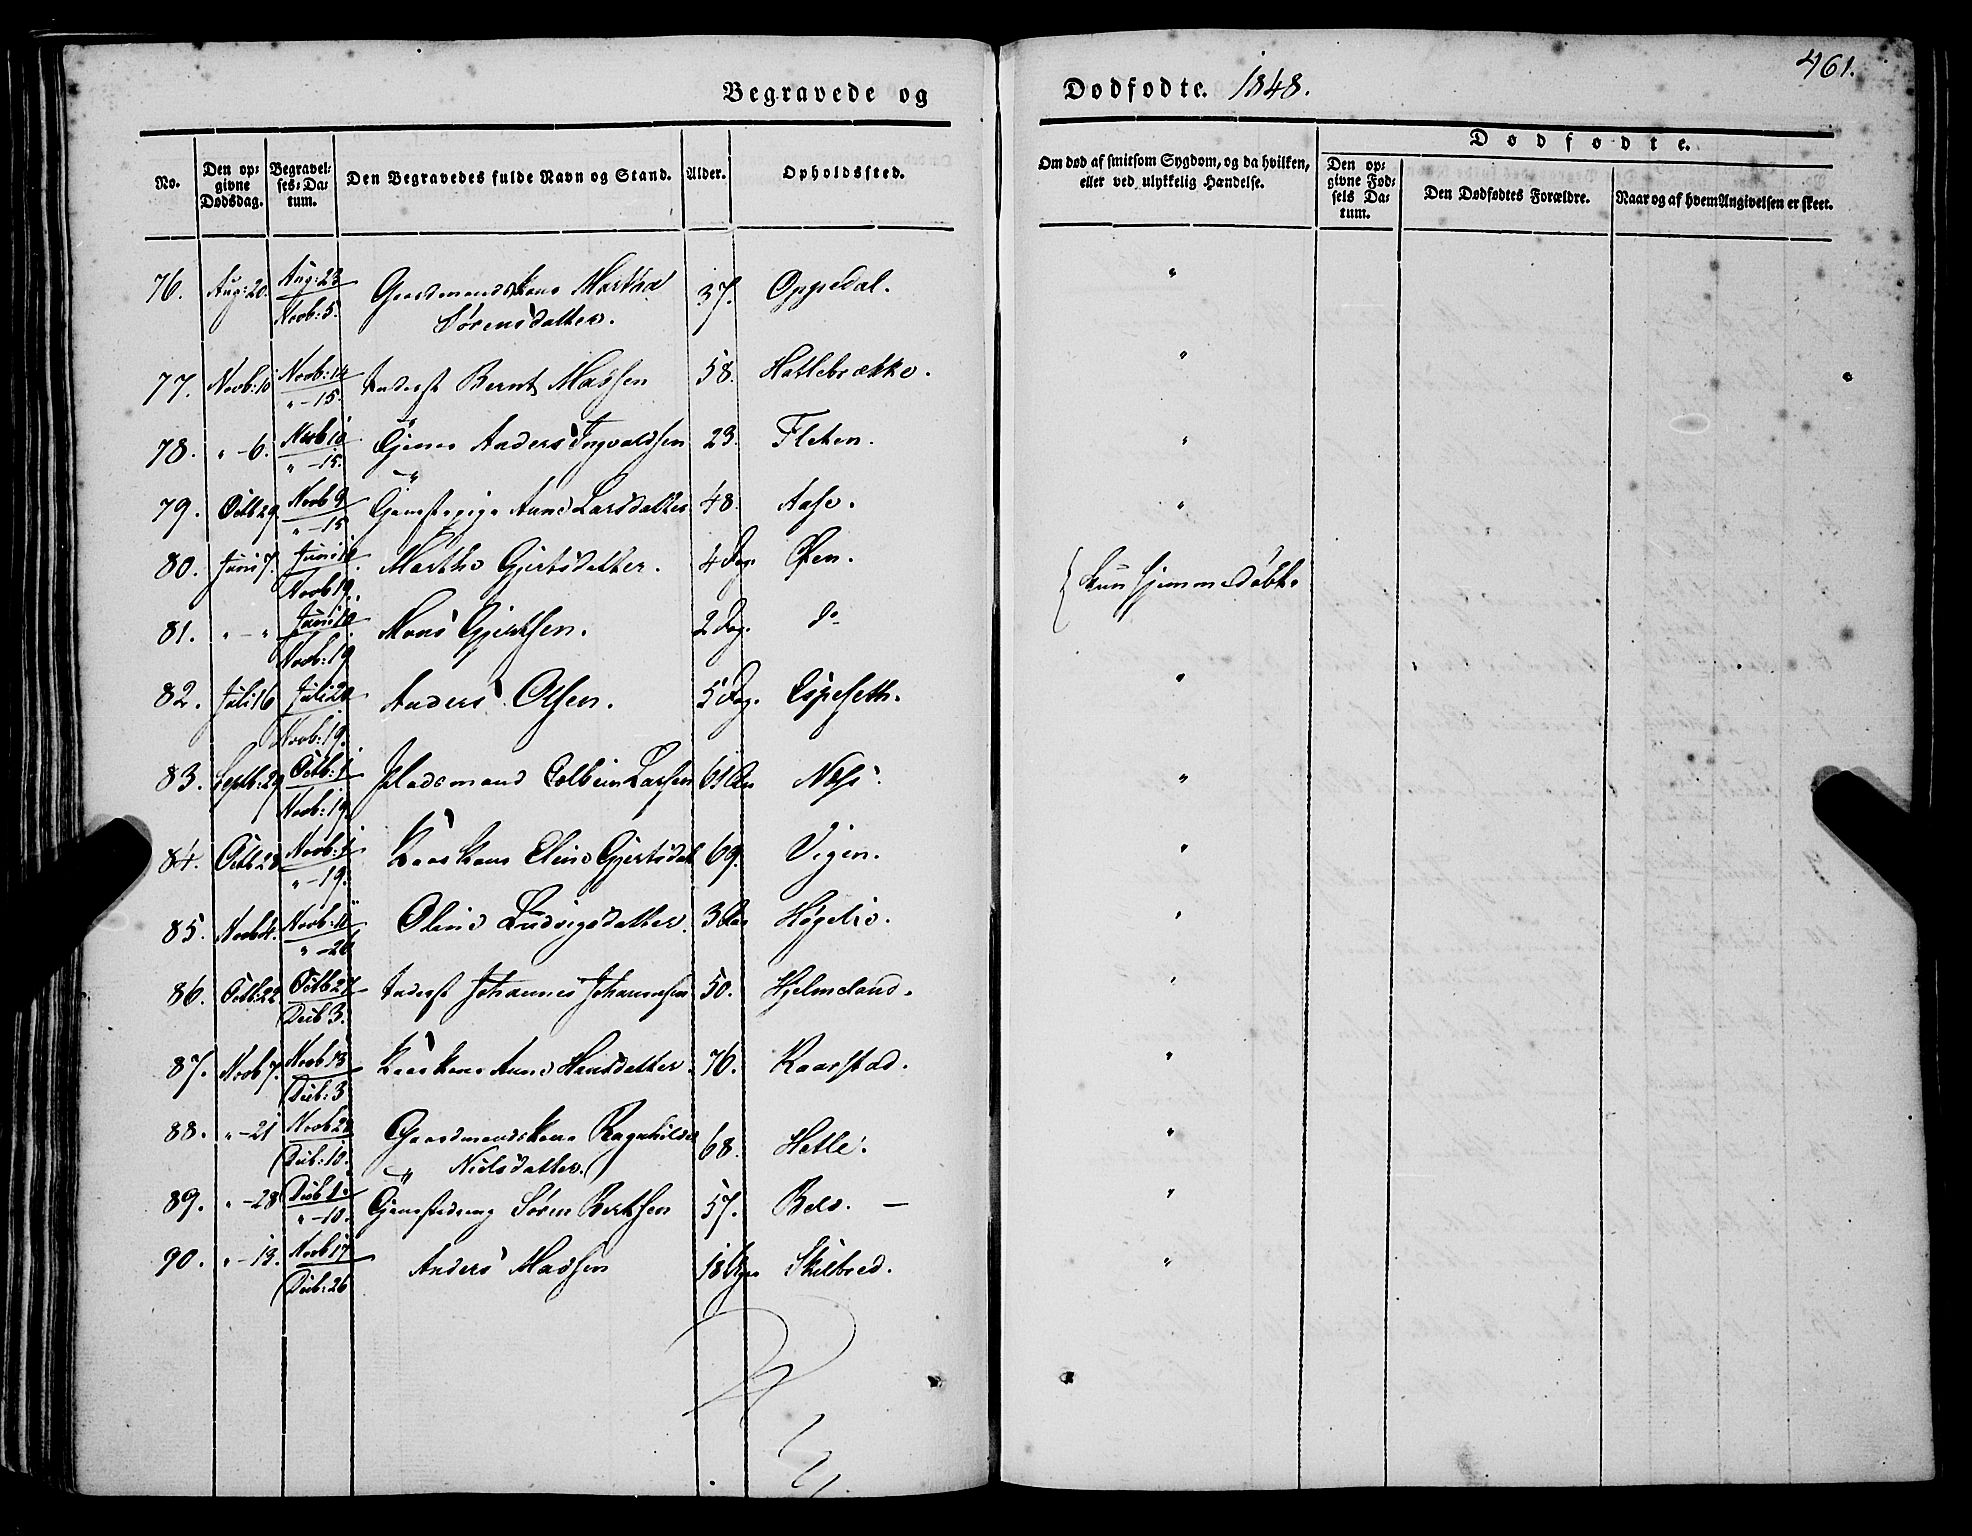 461.
Begravede og Dødfødte. 1848.
No.
Den opgivne Dødsdag.
Begravelses-Datum.
Den Begravedes fulde Navn og Stand.
Alder.
Opholdssted.
Om død af smitsom Sygdom, og da hvilken, eller ved ulykkelig Hændelse.
Dødfødte.
Den opgivne Fødsels Datum.
Den Dødfødtes Forældre.
Naar og af hvem Angivelsen er skeet.
76. Aug: 20. Aug: 23 Novb: 5. Gaardmandskone Martha Sørensdatter. 37. Oppedal. "
77. Novb: 10 Novb: 14 " - 15. Inderst Bernt Madsen 58. Hatlebrække. "
78. " - 6. Novb 10 " - 15. Anders Ingvaldsen 23. Fleten. "
79. Octb 29 Novb 9 " - 15 Anne Larsdatter 48. Aase. "
80. Juni 7. Juni 12 Novb 19. Marthe Gjertsdatter. 4 Dag. Øen. { kun hjemmedøbt.
81. " - " Juni 12 Novb: 19 Mons Gjertsen. 2 Dag. do
82. Juli 16 Juli 20 Novb: 19. Anders Olsen. 5 Dag. Espeseth. "
83. Septb: 29 Octb: 1 Novb: 19. Pladsmand Colbein Larsen 61 Aar Næss. "
84. Octb 28 Novb: 1 " - 19. Kaarkone Eline Gjertsdat 69. Vigen. "
85. Novb 4. Novb: 11 " - 26 Oline Ludvigsdatter. 3 Aar Høgelie. "
86. Octb: 22 Octb 27 Decb 3. Inderst Johannes Johannesen 50. Hjelmeland. "
87. Novb 7. Novb 13 Decb: 3 Kaarkone Anne Hansdatter. 76. Kaarstad. "
88. " - 21 Novb 28 Decb: 10. Gaardmandskone Ragnhilde Nielsdatter. 68. Hatle. "
89. " - 28 Decb 1. " - 10. Søren Bertsen 57. Belo. — "
90. " - 13. Novb 17 Decb: 26 Anders Madsen 18 Uger Skilbred. "